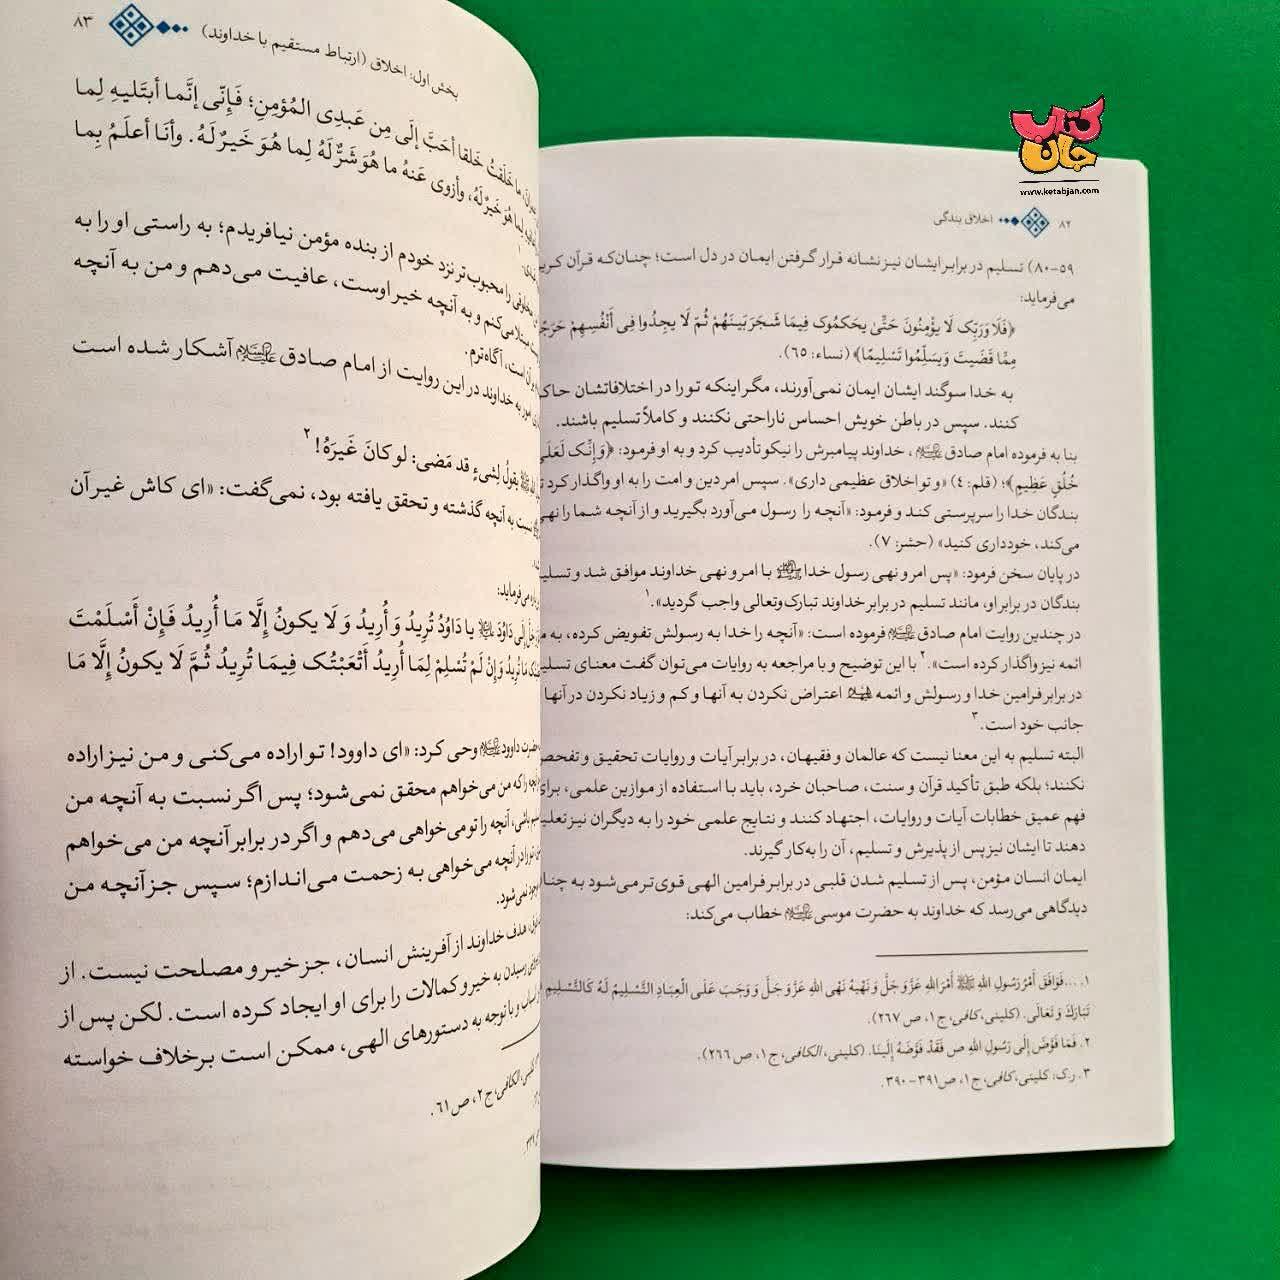 کتاب جان
www.ketabjan.com
۸۲ اخلاق بندگی
۵۹-۸۰) تسلیم در برابر ایشان نیز نشانه قرار گرفتن ایمان در دل است؛ چنان‌که قرآن
می‌فرماید:
﴿فَلَا وَرَبِّکَ لَا یؤْمِنُونَ حَتَّىٰ یحَکمُوکَ فِیمَا شَجَرَ بَینَهُمْ ثُمَّ لَا یجِدُوا فِی أَنْفُسِهِمْ
مِمَّا قَضَیتَ وَیسَلِّمُوا تَسْلِیمًا﴾ (نساء: ۶۵).
به خدا سوگند ایشان ایمان نمی‌آورند، مگر اینکه تو را در اختلافاتشان
کنند. سپس در باطن خویش احساس ناراحتی نکنند و کاملاً تسلیم باشند.
بنا به فرموده امام صادق علیه‌السلام، خداوند پیامبرش را نیکو تأدیب کرد و به او فرمود: ﴿وَإِنَّکَ
خُلُقٍ عَظِیمٍ﴾؛ (قلم: ۴) «و تو اخلاق عظیمی داری». سپس امر دین و امت را به او واگذار کرد
بندگان خدا را سرپرستی کند و فرمود: «آنچه را رسول می‌آورد بگیرید و از آنچه شما را
می‌کند، خودداری کنید» (حشر: ۷).
در پایان سخن فرمود: «پس امر و نهی رسول خدا ﷺ با امر و نهی خداوند موافق شد و
بندگان در برابر او، مانند تسلیم در برابر خداوند تبارک‌وتعالی واجب گردید».۱
در چندین روایت امام صادق علیه‌السلام فرموده است: «آنچه را خدا به رسولش تفویض کرده، به
ائمه نیز واگذار کرده است».۲ با این توضیح و با مراجعه به روایات می‌توان گفت معنای
در برابر فرامین خدا و رسولش و ائمه اعتراض نکردن به آنها و کم و زیاد نکردن در آنها
جانب خود است.۳
البته تسلیم به این معنا نیست که عالمان و فقیهان، در برابر آیات و روایات تحقیق و تفحص
نکنند؛ بلکه طبق تأکید قرآن و سنت، صاحبان خرد، باید با استفاده از موازین علمی، برای
فهم عمیق خطابات آیات و روایات، اجتهاد کنند و نتایج علمی خود را به دیگران نیز
دهند تا ایشان نیز پس از پذیرش و تسلیم، آن را به‌کار گیرند.
ایمان انسان مؤمن، پس از تسلیم شدن قلبی در برابر فرامین الهی قوی‌تر می‌شود به
دیدگاهی می‌رسد که خداوند به حضرت موسی علیه‌السلام خطاب می‌کند:
۱. ...فَوَافَقَ أَمْرُ رَسُولِ اللهِ ﷺ أَمْرَ اللهِ عَزَّ وَجَلَّ وَنَهْیُهُ نَهْیَ اللهِ عَزَّ وَجَلَّ وَ وَجَبَ عَلَی الْعِبَادِ التَّسْلِیمُ لَهُ کَالتَّسْلِیمِ
تَبَارَکَ وَ تَعَالَی. (کلینی، کافی، ج۱، ص ۲۶۷).
۲. فَمَا فَوَّضَ إِلَی رَسُولِ اللهِ ص فَقَدْ فَوَّضَهُ إِلَینَا. (کلینی، الکافی، ج۱، ص ۲۶۶).
۳. ر.ک: کلینی، کافی، ج۱، ص۳۹۱-۳۹۰.
بخش اول: اخلاق (ارتباط مستقیم با خداوند) ۸۳
ما خَلَقتُ خَلقا أحَبَّ إلَی مِن عَبدِی المُؤمِنِ؛ فَإِنّی إنَّما أبتَلیهِ لِما
هُوَ خَیرٌ لَهُ، وأزوی عَنهُ ما هُوَ شَرٌّ لَهُ لِما هُوَ خَیرٌ لَهُ. وأنَا أعلَمُ بِما
مخلوقی را محبوب‌تر نزد خودم از بنده مؤمن نیافریدم؛ به راستی او را به
مبتلا می‌کنم و به آنچه خیر اوست، عافیت می‌دهم و من به آنچه
آن است، آگاه‌ترم.
امور به خداوند در این روایت از امام صادق علیه‌السلام آشکار شده است
یقولُ لِشیءٍ قد مَضی: لو کانَ غَیرَهُ!۲
نسبت به آنچه گذشته و تحقق یافته بود، نمی‌گفت: «ای کاش غیر آن
می‌فرماید:
إلَی دَاوُدَ یا دَاوُدُ تُرِیدُ وَ أُرِیدُ وَ لَا یکونُ إِلَّا مَا أُرِیدُ فَإِنْ أَسْلَمْتَ
مَا تُرِیدُ وَإِنْ لَمْ تُسْلِمْ لِمَا أُرِیدُ أَتْعَبْتُک فِیمَا تُرِیدُ ثُمَّ لَا یکونُ إِلَّا مَا
حضرت داوود علیه‌السلام وحی کرد: «ای داوود! تو اراده می‌کنی و من نیز اراده
را که من می‌خواهم محقق نمی‌شود؛ پس اگر نسبت به آنچه من
باشی، آنچه را تو می‌خواهی می‌دهم و اگر در برابر آنچه من می‌خواهم
تو را در آنچه می‌خواهی به زحمت می‌اندازم؛ سپس جز آنچه من
نمی‌شود.
هدف خداوند از آفرینش انسان، جز خیر و مصلحت نیست. از
رسیدن به خیر و کمالات را برای او ایجاد کرده است. لکن پس از
و با توجه به دستورهای الهی، ممکن است برخلاف خواسته
کلینی، الکافی، ج۲، ص۶۱.